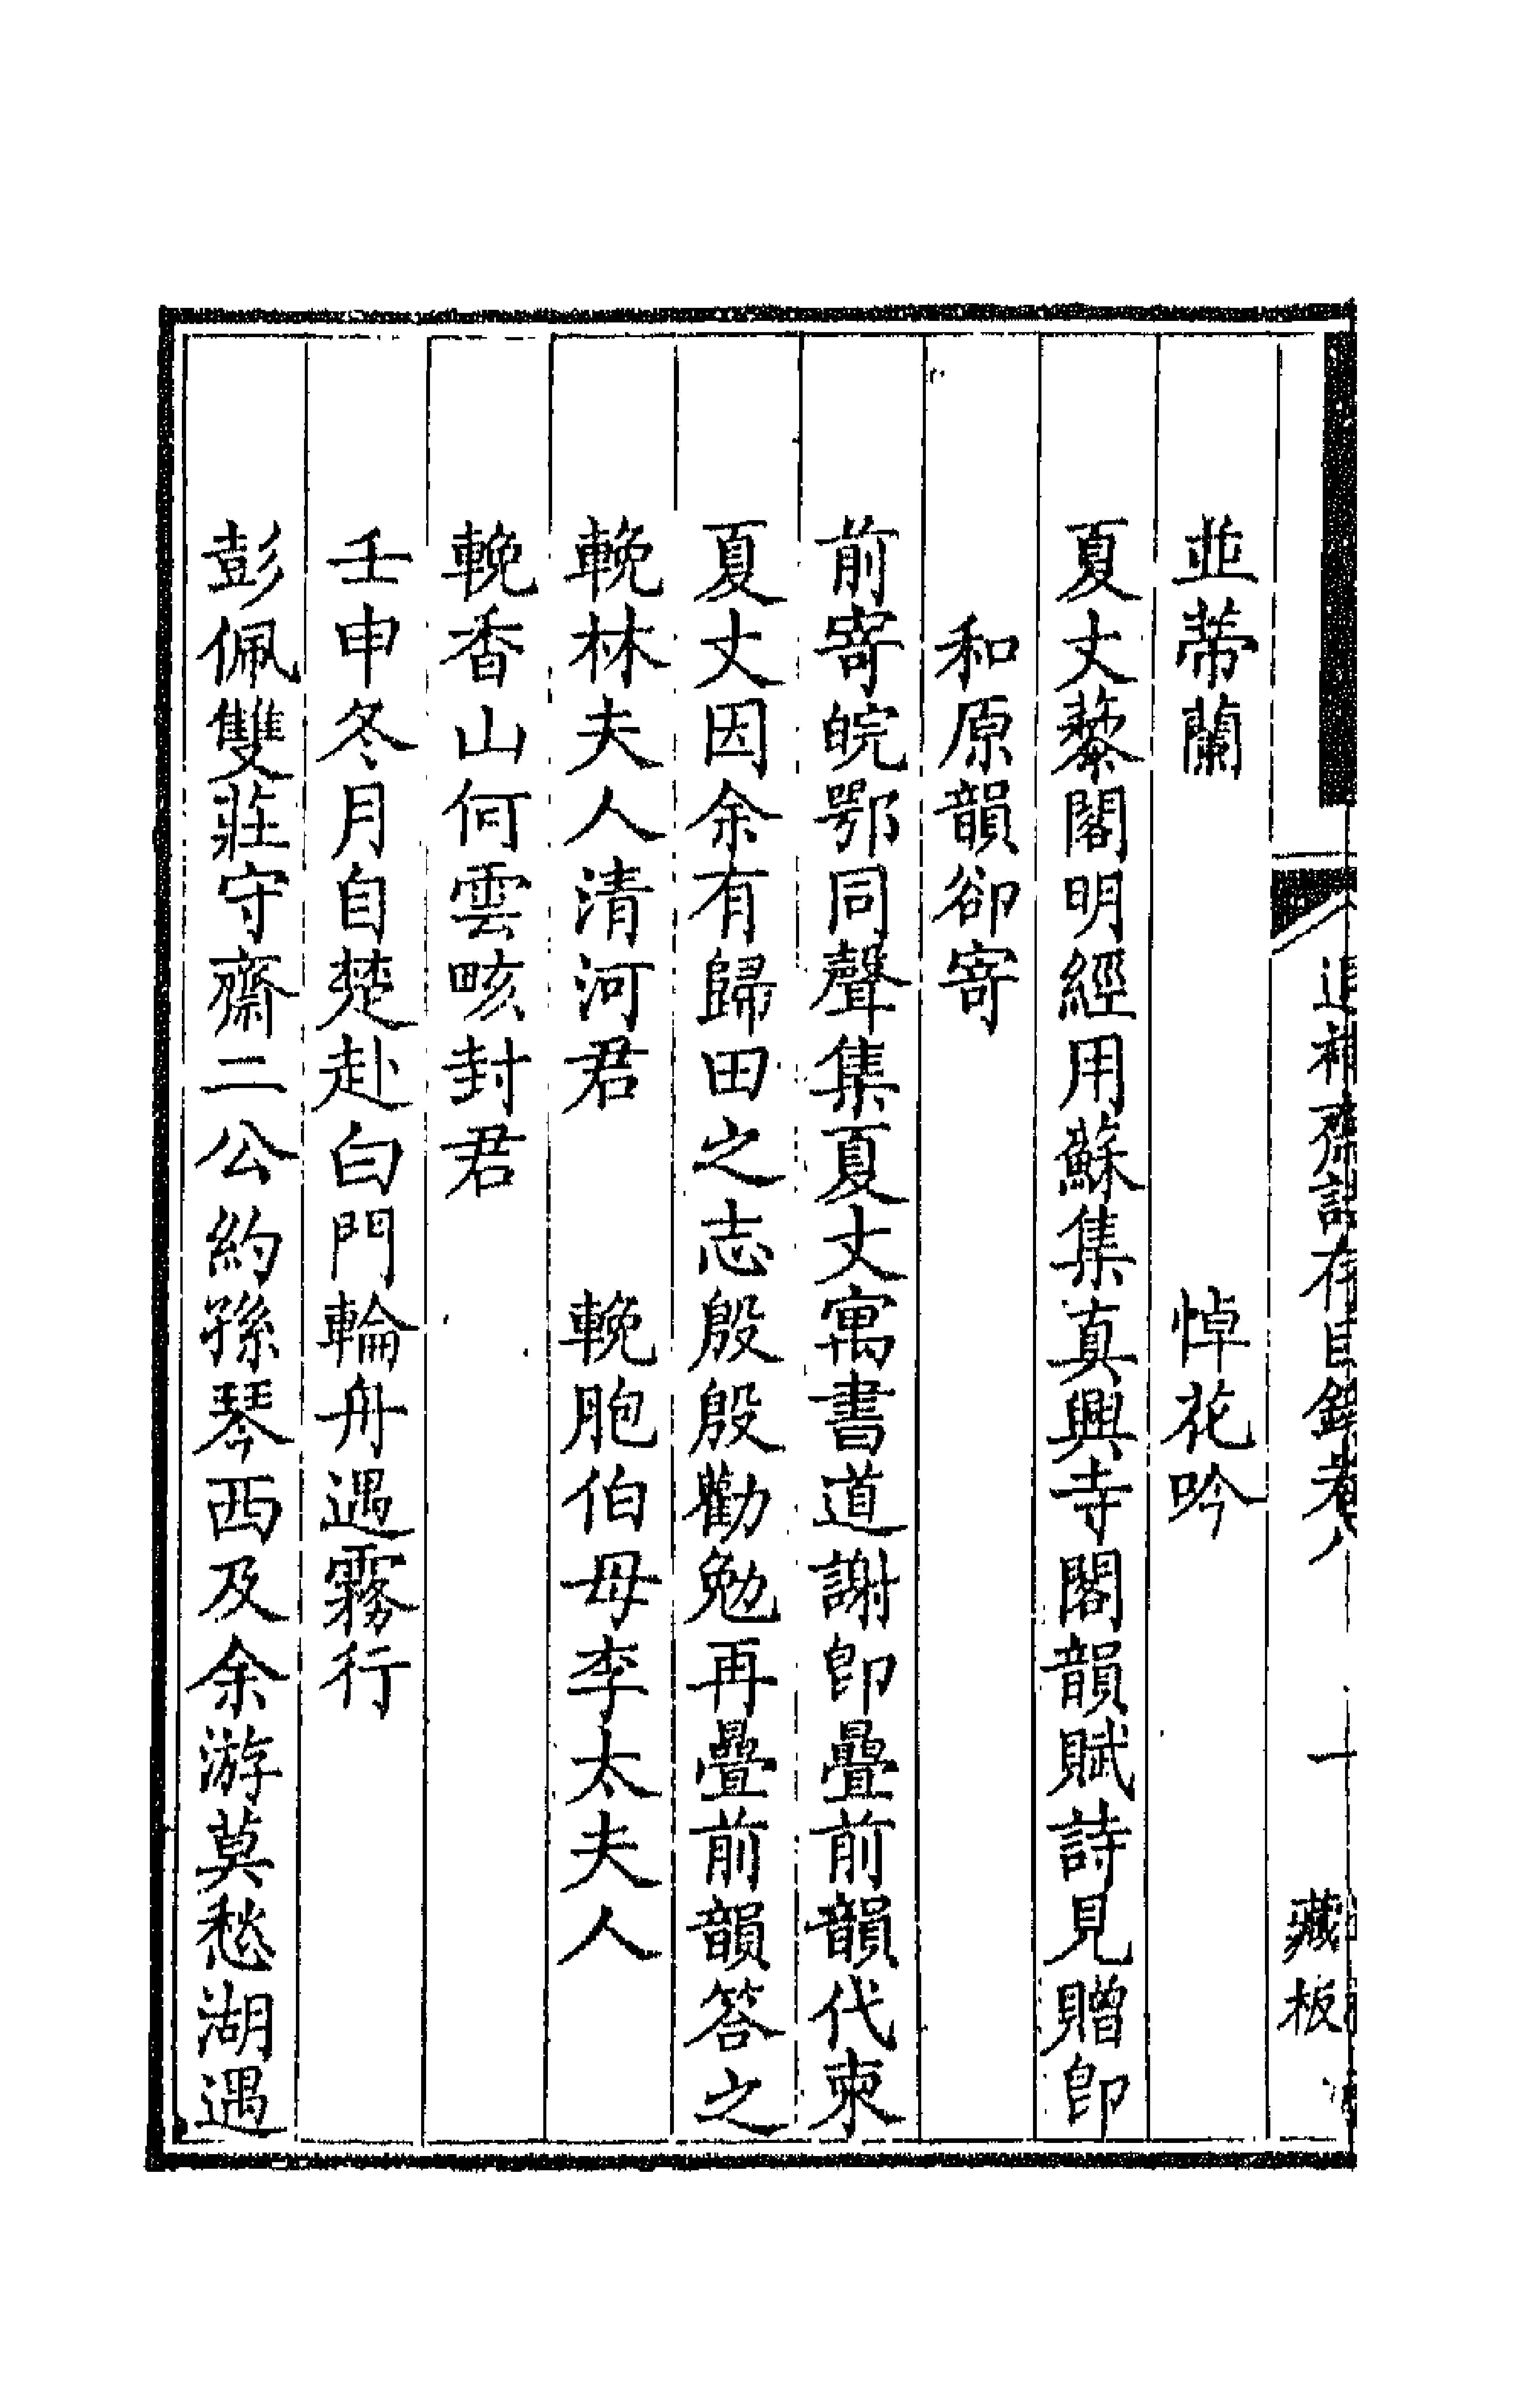 退補齋詩存目錄卷八　十　藏板
並蒂蘭　悼花吟
夏丈藜閣明經用蘇集真興寺閣韻賦詩見贈卽
和原韻卻寄
前寄皖鄂同聲集夏丈寓書道謝卽疊前韻代柬
夏丈因余有歸田之志殷殷勸勉再疊前韻答之
輓林夫人清河君　輓胞伯母李太夫人
輓香山何雲畡封君
壬申冬月自楚赴白門輪舟遇霧行
彭佩雙莊守齋二公約孫琴西及余游莫愁湖遇